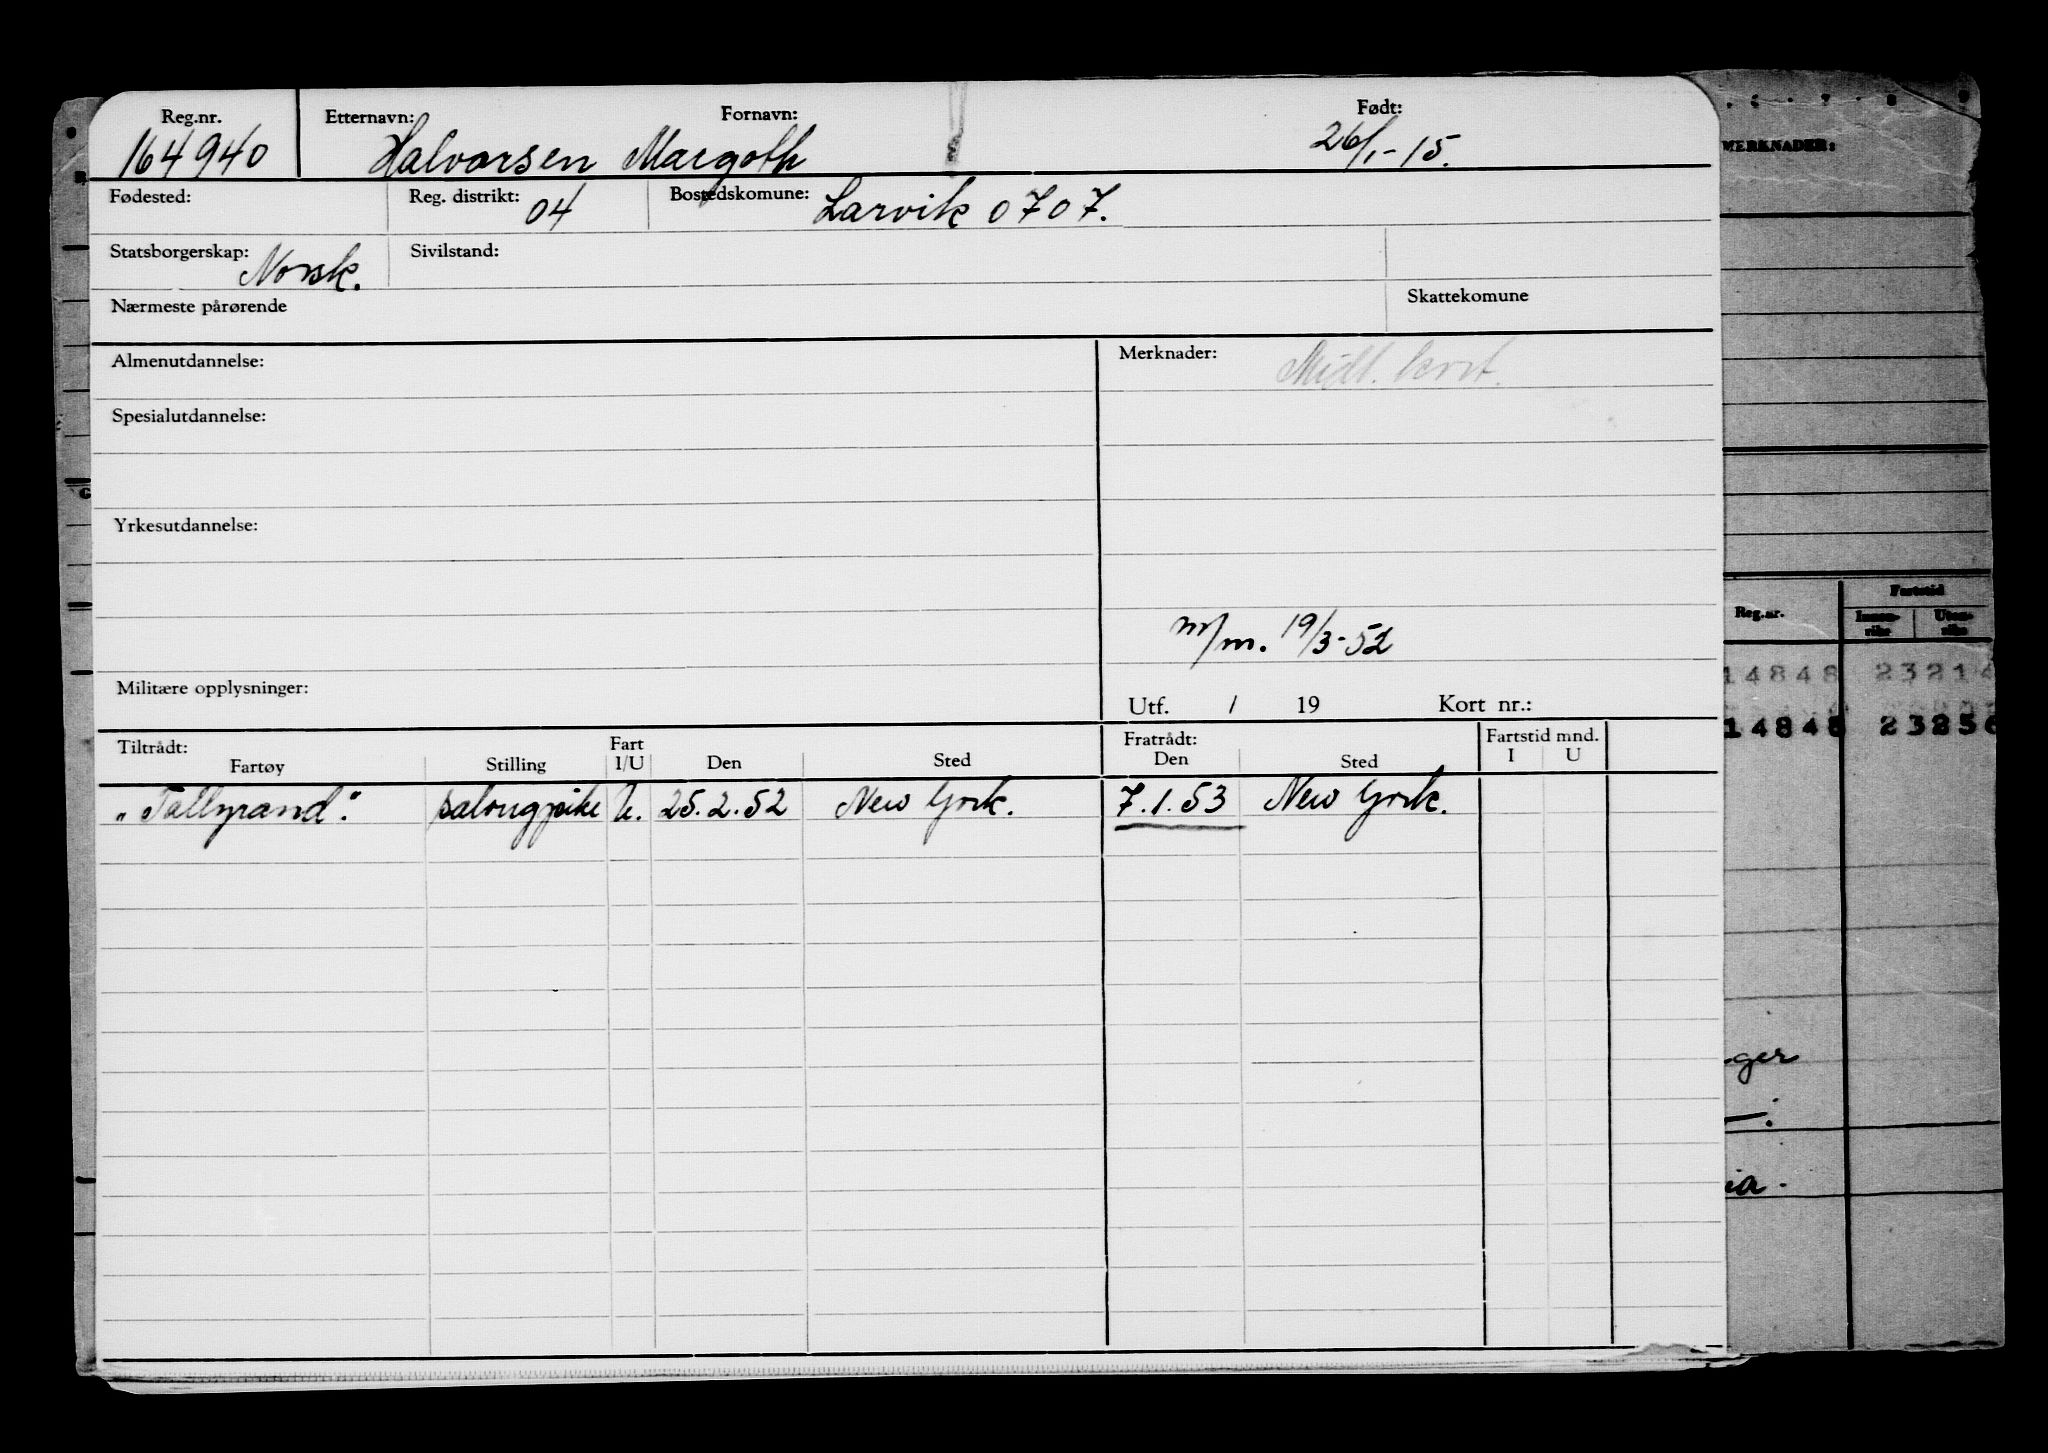 Reg.nr. Etternavn: Fornavn: Født:
164940 Halvorsen Margoth 26/1-15.
Fødested: Reg. distrikt: 04 Bostedskomune: Larvik 0707.
Statsborgerskap: Norsk. Sivilstand:
Nærmeste pårørende Skattekomune
Almenutdannelse: Merknader: Midl. kort.
Spesialutdannelse:
Yrkesutdannelse:
m/m. 19/3-52
Militære opplysninger: Utf. / 19 Kort nr.:
Tiltrådt: Fart Fratrådt: Fartstid mnd.
Fartøy Stilling I/U Den Sted Den Sted I U
"Tallyrand". salongpike U. 25.2.52 New York. 7.1.53 New York.
MERKNADER:
Fartstid
Reg.nr. Innen- Uten-
riks riks
14848 23214
14848 23256
ger
ia.